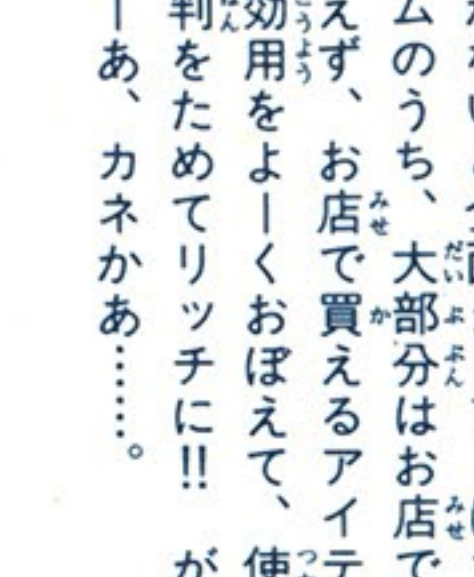 ムのうち、大部分はお店で
えず、お店で買えるアイテ
効用をよーくおぼえて、使
判をためてリッチに!! が
ーあ、カネかあ……。